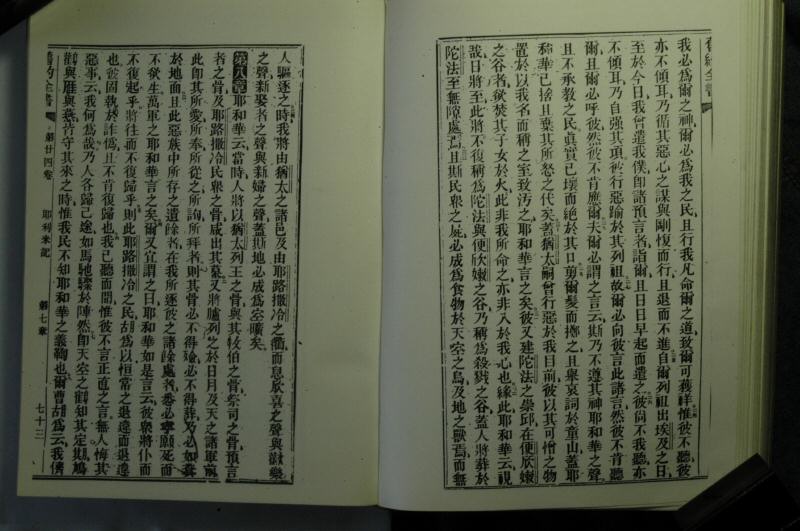 舊約全書
我必爲爾之神爾必爲我之民且行我凡命爾之道致爾可獲祥惟彼不聽彼
亦不傾耳乃循其惡心之謀與剛愎而行且退而不進自爾列祖出埃及之日
至於今日我曾遣我僕即諸預言者詣爾且日日早起而遣之彼尙不我聽亦
不傾耳乃自強其項彼行惡踰於其列祖故爾必向彼言此諸言然彼不肯聽
爾且爾必呼彼然彼不肯應爾夫爾必謂之言云斯乃不遵其神耶和華之聲
且不承教之民眞實已壞而絕於其口剪爾髮而擲之且舉哀詞於童山蓋耶
和華已捨且棄其所怒之代矣蓋猶太嗣曾行惡於我目前彼以其可憎之物
置於以我名而稱之室致汚之耶和華言之矣彼又建陀法之崇邱在便欣嫩
之谷者欲焚其子女於火此非我所命之亦非入於我心也緣此耶和華云視
哉日將至此將不復稱爲陀法與便欣嫩之谷乃稱爲殺戮之谷蓋人將葬於
陀法至無隙處焉且斯民衆之屍必成爲食物於天空之鳥及地之獸焉而無
人驅逐之時我將由猶太之諸邑及由耶路撒冷之衢而息欣喜之聲與歡樂
之聲新娶者之聲與新婦之聲蓋斯地必成爲空曠矣
第八章耶和華云當時人將以猶太列王之骨與其牧伯之骨祭司之骨預言
者之骨及耶路撒冷民衆之骨咸出其墓又將臚列之於日月及天之諸軍前
此即其所愛所奉所從之所詢所拜者則其骨必不得殮必不得葬乃必如糞
於地面且此惡族中所存之遺餘者在我所逐彼之諸餘處者悉必寧願死而
不欲生萬軍之耶和華言之矣爾又宜謂之曰耶和華如是言云彼衆將仆而
不復起乎將往而不復歸乎則此耶路撒冷之民胡爲以恒常之退違而退違
也彼固執於詐僞且不肯復歸也我已聽而聞惟彼不言正直之言無人悔其
惡事云我何爲哉乃人各歸己途如馬馳驟於陣然即天空之鸛知其定期鳩
與雁與燕皆守其來之時惟我民不知耶和華之義鞫也爾曹胡爲云我儕
舊約全書
第廿四卷
耶利米記
第七章
七十三